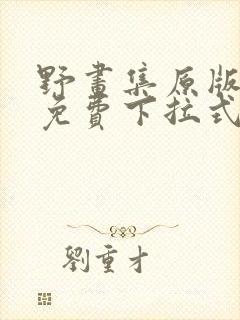 野畫集原版
免費下拉式
劉重才